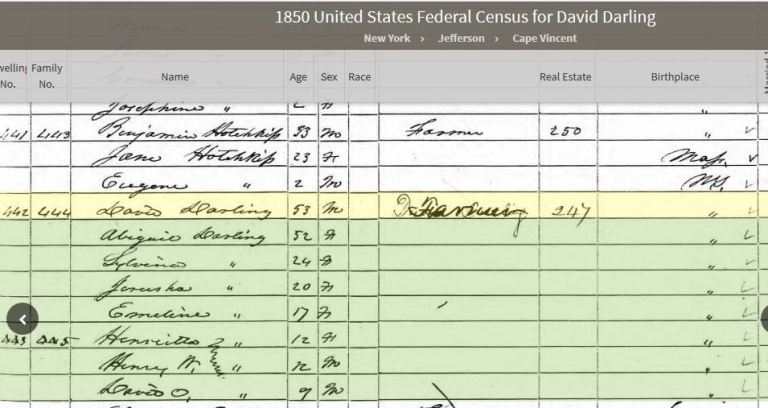 1850 United States Federal Census for David Darling
New York › Jefferson › Cape Vincent
Dwelling No. Family No. Name Age Sex Race Real Estate Birthplace
Josephine "
441 443 Benjamin Hotchkiss 33 M Farmer 250 " ✓
Jane Hotchkiss 23 F Mass. ✓
Eugene " 2 M NY. ✓
442 444 David Darling 53 M Farming 247 " ✓
Abigail Darling 52 F " ✓
Sylvina " 24 F " ✓
Jerusha " 20 F " ✓
Emeline " 17 F " ✓
443 445 Henrietta " 12 F " ✓
Henry W. " 12 M " ✓
David O. " 9 M " ✓